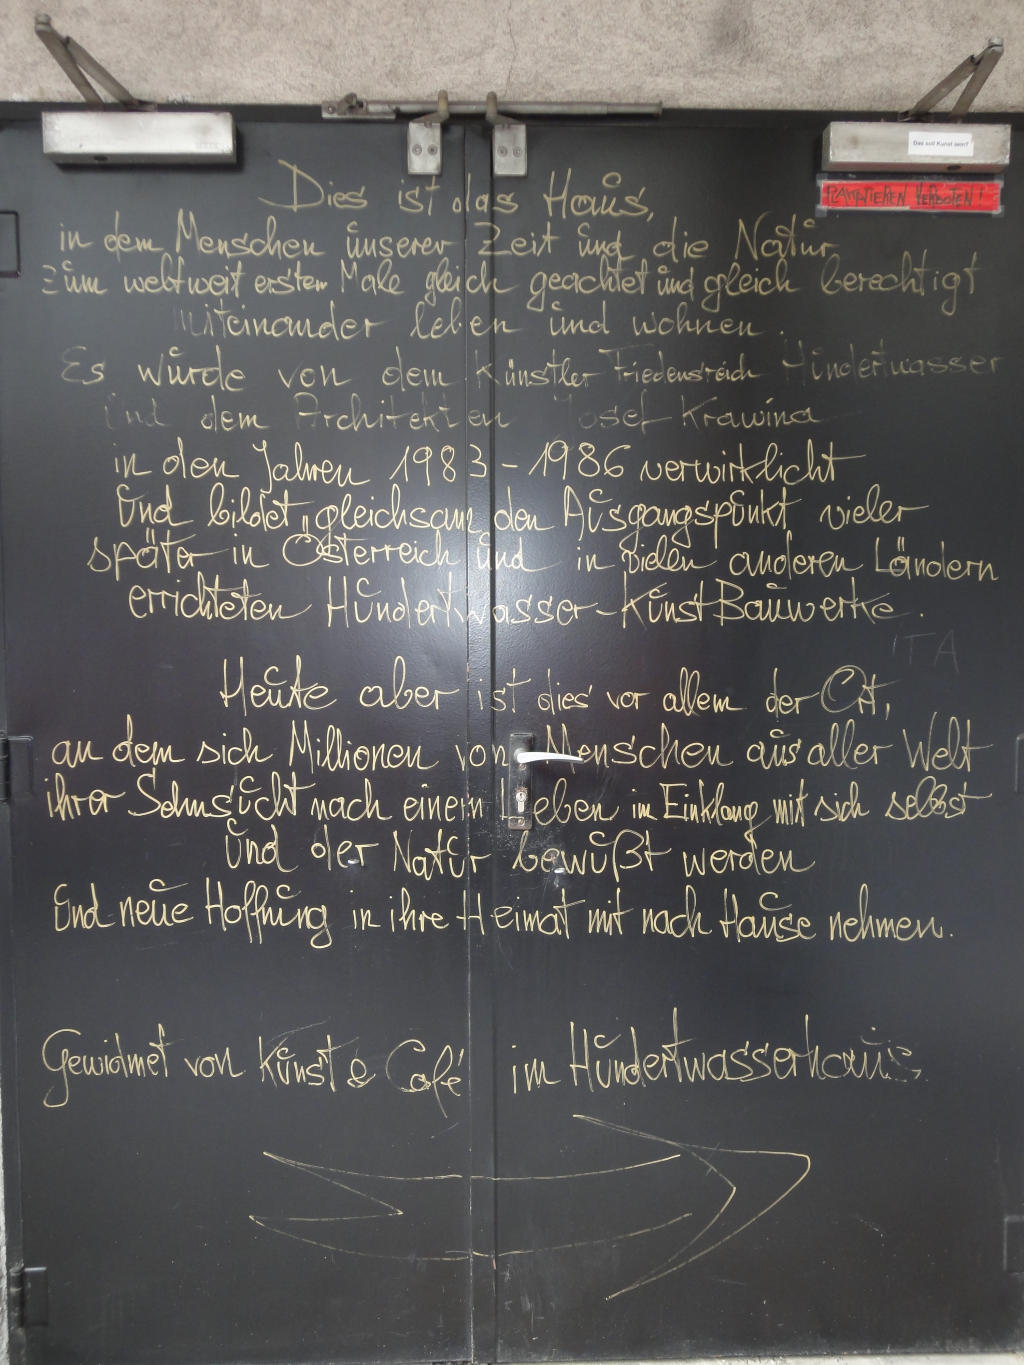 Das soll Kunst sein?
PLAKATIEREN VERBOTEN!
Dies ist das Haus,
in dem Menschen unserer Zeit und die Natur
zum weltweit ersten Male gleich geachtet und gleich berechtigt
miteinander leben und wohnen.
Es wurde von dem Künstler Friedensreich Hundertwasser
und dem Architekten Josef Krawina
in den Jahren 1983-1986 verwirklicht
und bildet gleichsam den Ausgangspunkt vieler
später in Österreich und in vielen anderen Ländern
errichteten Hundertwasser-KunstBauwerke.
ITA
Heute aber ist dies vor allem der Ort,
an dem sich Millionen von Menschen aus aller Welt
ihrer Sehnsucht nach einem Leben im Einklang mit sich selbst
und der Natur bewußt werden
Und neue Hoffnung in ihre Heimat mit nach Hause nehmen.
Gewidmet von Kunst & Café im Hundertwasserhaus